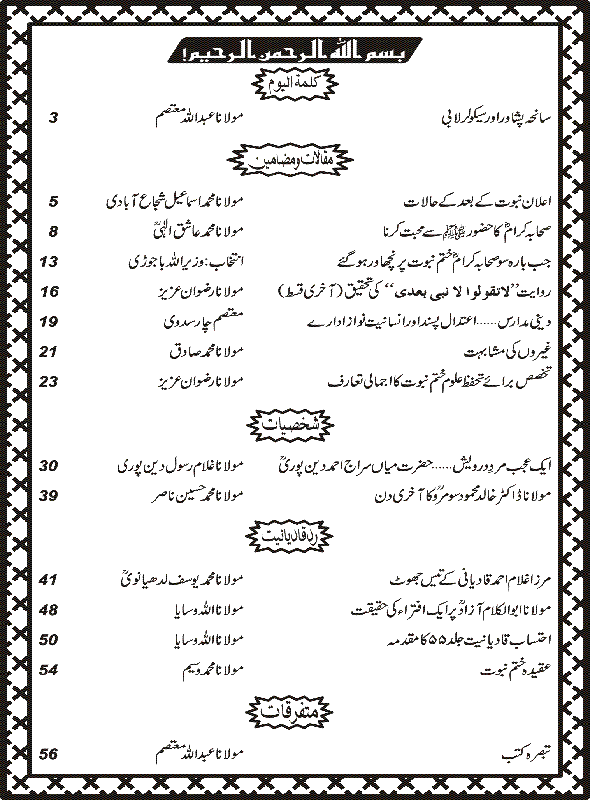 بسم اللہ الرحمن الرحیم!
کلمۃ الیوم
سانحہ پشاور اور سیکولر لابی مولانا عبداللہ معتصم 3
مقالات و مضامین
اعلان نبوت کے بعد کے حالات مولانا محمد اسماعیل شجاع آبادی 5
صحابہ کرامؓ کا حضور ﷺ سے محبت کرنا مولانا محمد عاشق الٰہیؒ 8
جب بارہ سو صحابہ کرامؓ ختم نبوت پر نچھاور ہوگئے انتخاب: وزیر اللہ باجوڑی 13
روایت ”لاتقولوا لا نبی بعدی“ کی تحقیق (آخری قسط) مولانا رضوان عزیز 16
دینی مدارس...... اعتدال پسند اور انسانیت نواز ادارے معتصم چارسدوی 19
غیروں کی مشابہت مولانا محمد صادق 21
تخصص برائے تحفظ علوم ختم نبوت کا اجمالی تعارف مولانا رضوان عزیز 23
شخصیات
ایک عجب مرد درویش...... حضرت میاں سراج احمد دین پوریؒ مولانا غلام رسول دین پوری 30
مولانا ڈاکٹر خالد محمود سومروؒ کا آخری دن مولانا محمد حسین ناصر 39
رد قادیانیت
مرزا غلام احمد قادیانی کے تیس جھوٹ مولانا محمد یوسف لدھیانویؒ 41
مولانا ابوالکلام آزادؒ پر ایک افتراء کی حقیقت مولانا اللہ وسایا 48
احتساب قادیانیت جلد ۵۵ کا مقدمہ مولانا اللہ وسایا 50
عقیدہ ختم نبوت مولانا محمد وسیم 54
متفرقات
تبصرہ کتب مولانا عبداللہ معتصم 56